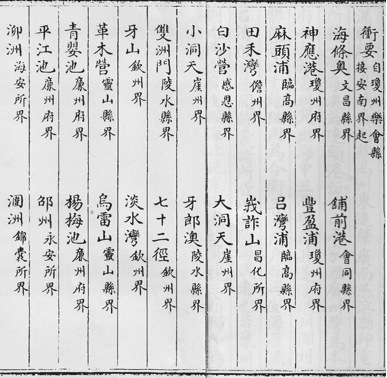 衝要自瓊州樂會縣接安南界起
海條奧文昌縣界
鋪前港會同縣界
神應港瓊州府界
豐盈浦瓊州府界
麻頭浦臨高縣界
呂灣浦臨高縣界
田禾灣儋州界
峩詐山昌化所界
白沙營感恩縣界
大洞天崖州界
小洞天崖州界
牙郎澳陵水縣界
雙洲門陵水縣界
七十二徑欽州界
牙山欽州界
淡水灣欽州界
革木營靈山縣界
烏雷山靈山縣界
青嬰池廉州府界
楊梅池廉州府界
平江池廉州府界
邵州永安所界
泖洲海安所界
潿洲錦囊所界